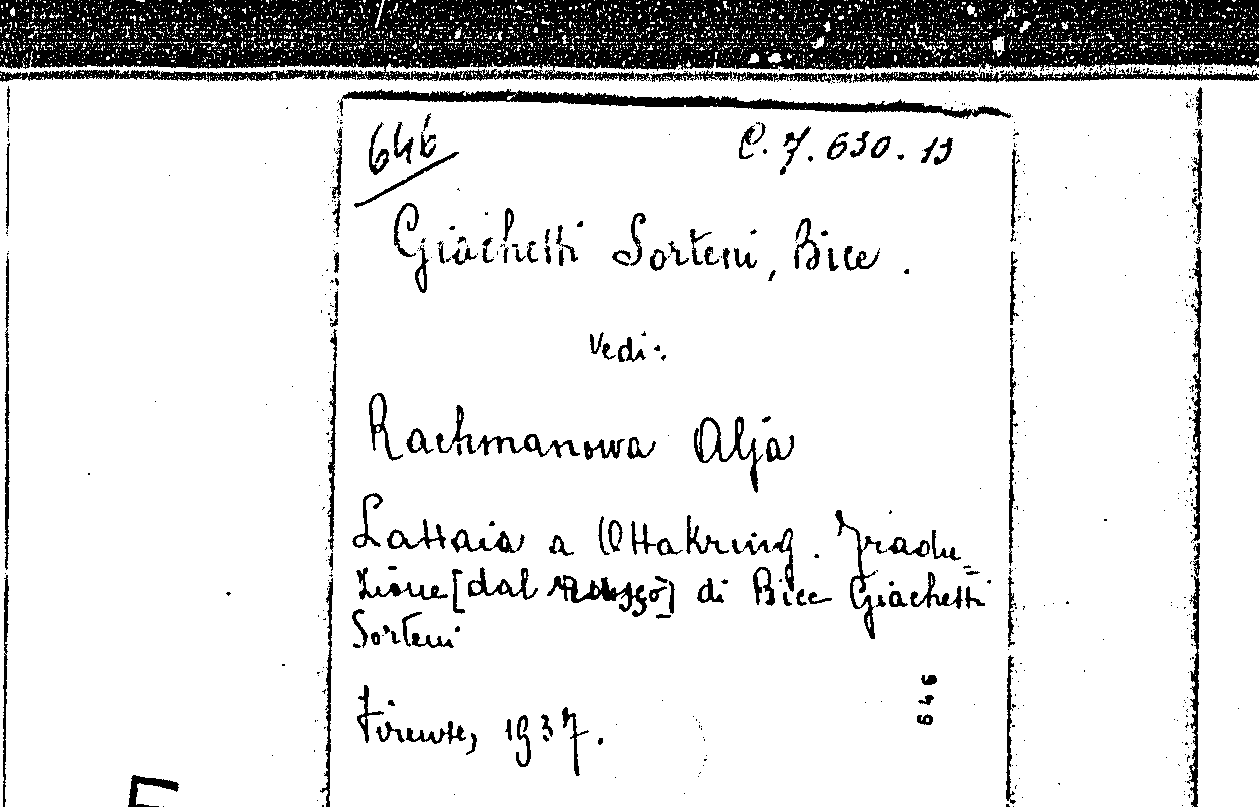 646 C. 7. 630. 13
Giachetti Sorteni, Bice.
Vedi:
Rachmanowa Alja
Lattaia a Ottakring. Tradu=
zione [dal russo] di Bice Giachetti
Sorteni
Firenze, 1937.
646
E